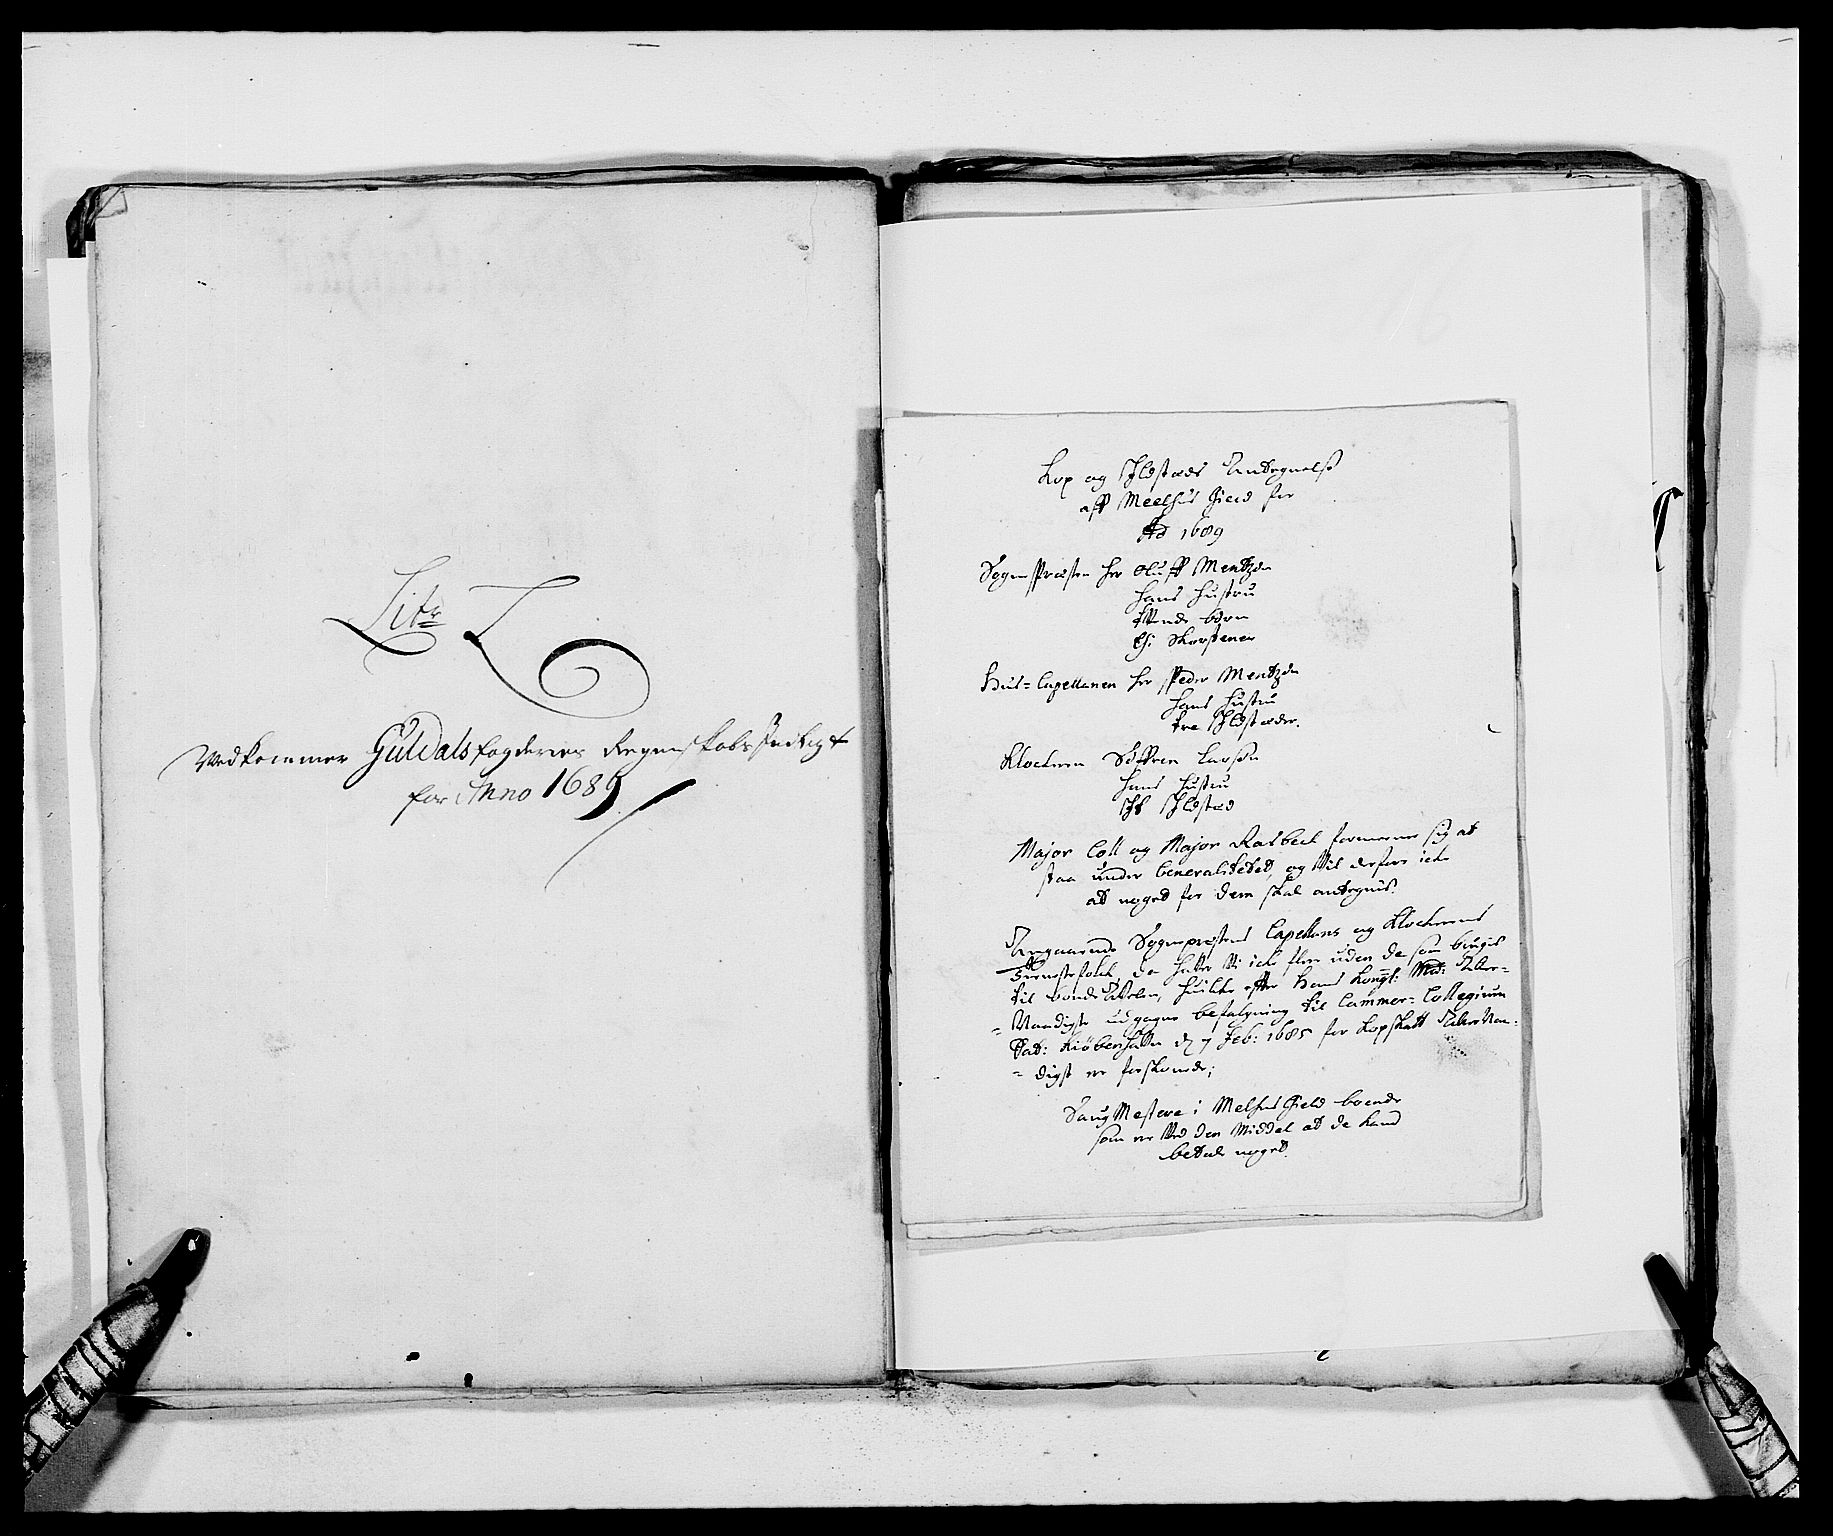 Litr Z
Vedkommer Guldals fogderies Regenskabs
for Anno 1689
Kop og Ildsteds Antegnelse
aff Meelhus Gield for
Ao 1689
SognePresten her Oluff Mentzen
hans Hustru
børn
Skorstener
Huus=Capellanen her Peder Mentzen
hans Hustru
tre Ildsteder.
Klockeren Søffren Larsen
hans Hustru
Ildsted
Major Coll og Major Rasbech formener sig at
staa under Generalitetet, og Vil derfore icke
at noget for dem skal antegnis.
Angaaende Sogneprestens Capellans og Klockerens
tienistefolck da haffer Vi icke flere uden de som brugis
til bonde Auflen, huilke effter Hans Kongl: May: Aller=
=Naadigste udgagne befalgning til Cammer=Collegium
Dat: Kiøbenhaffn d 7 Feb: 1685 for Kopskatt Allernaa=
=digst er forskonede;
SaugMestere i Melhus Gield boende
som er Ved den Middel at de kand
betale noget.